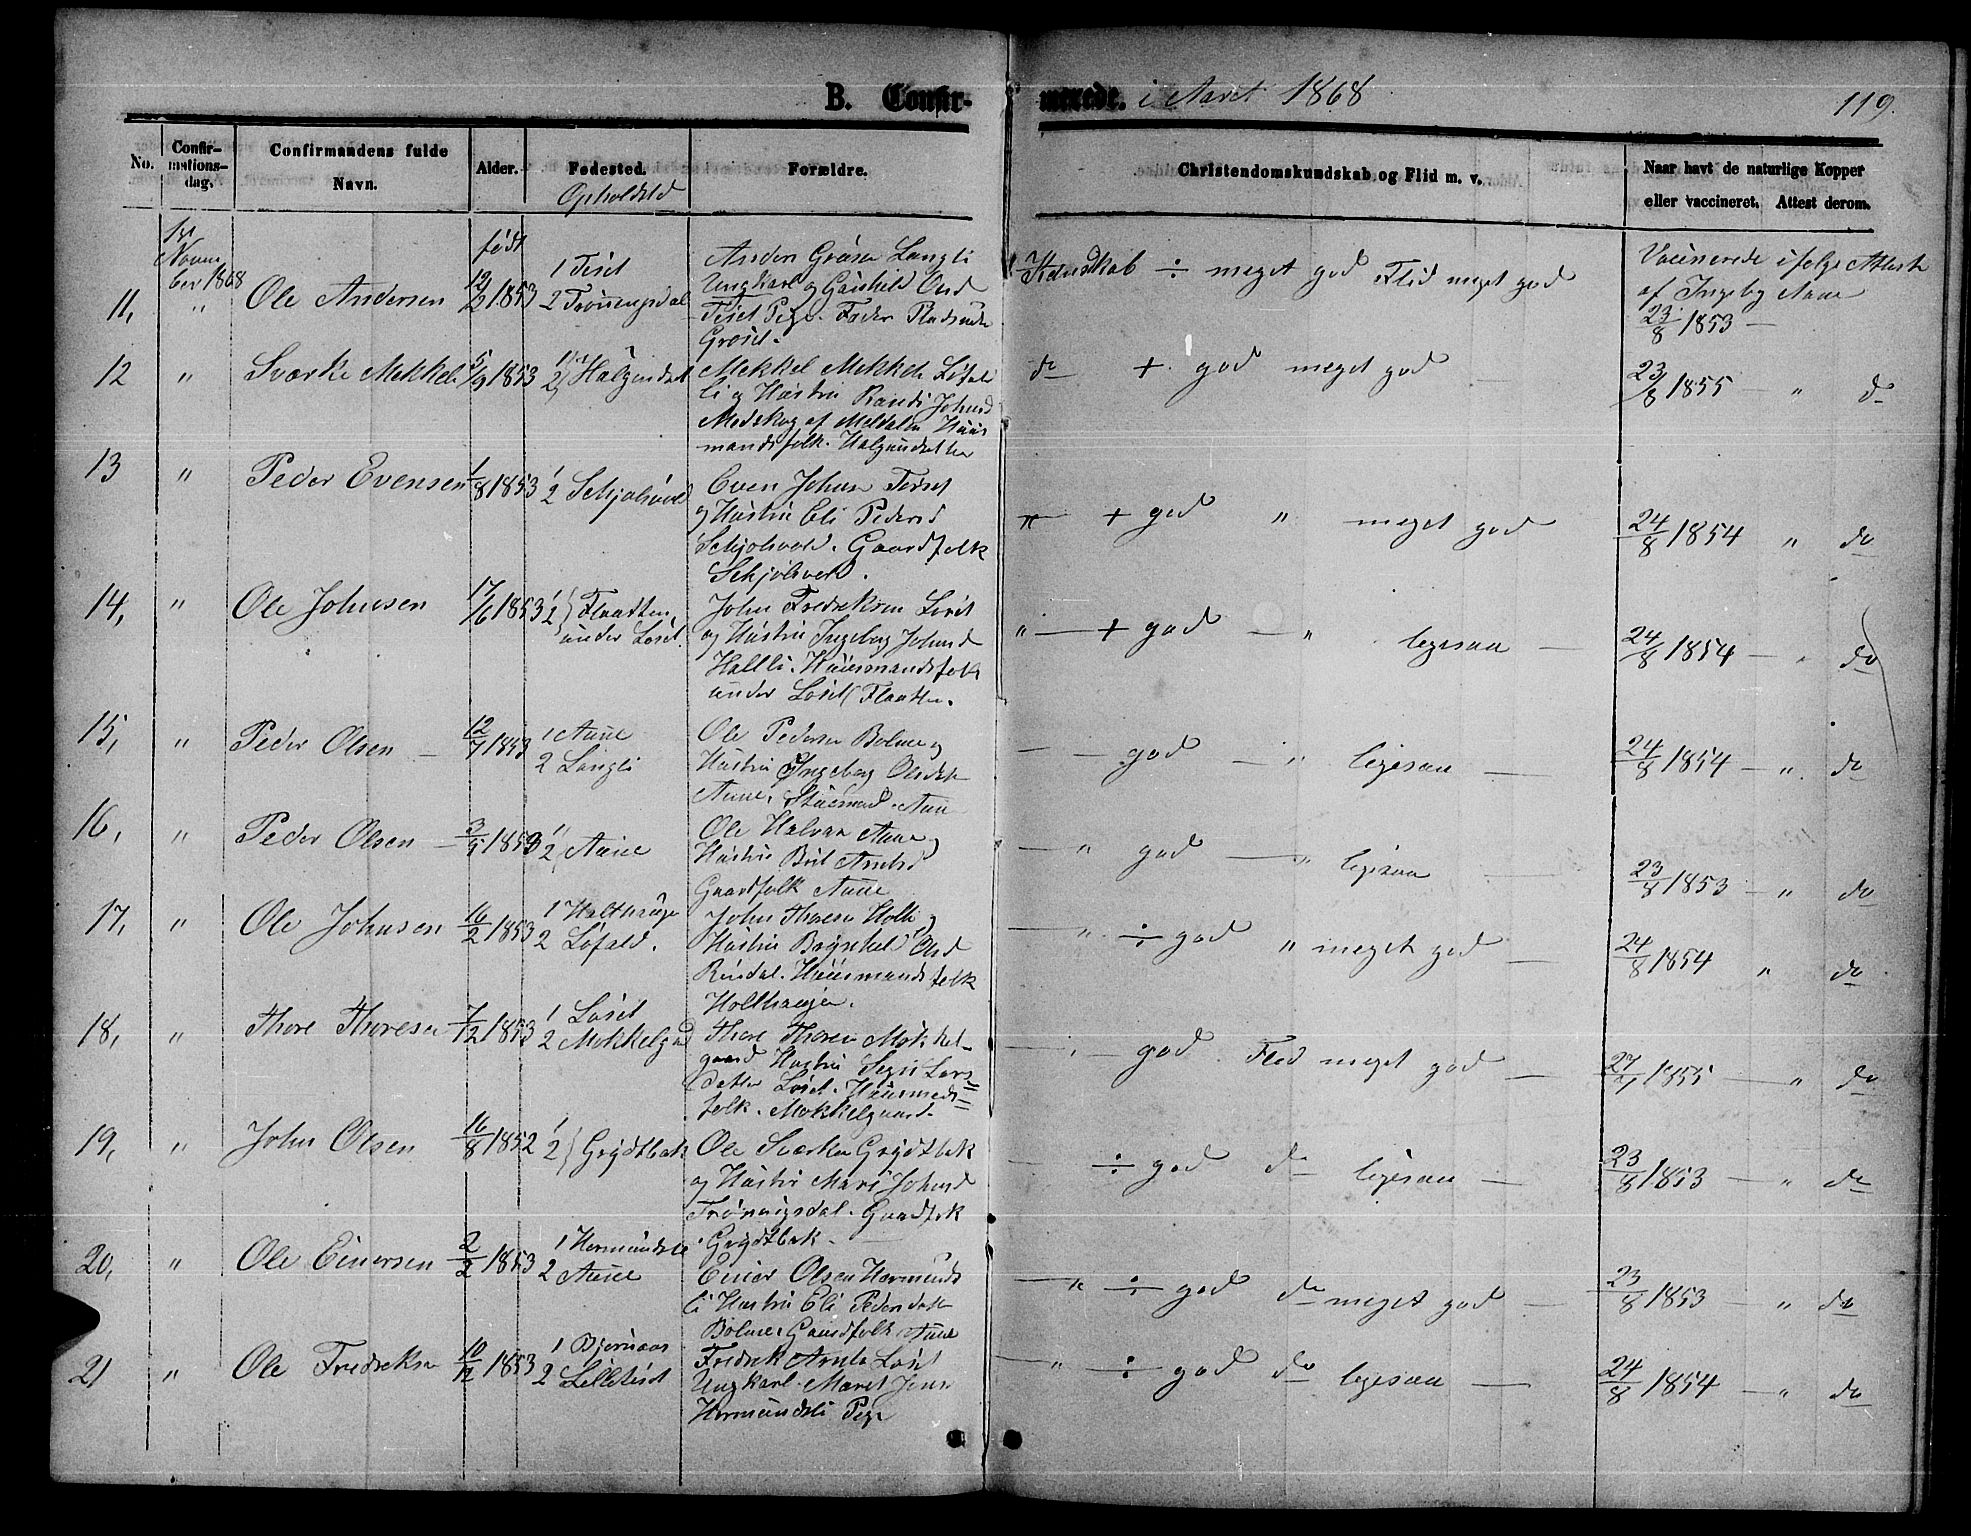 B. Confir- merede. i Aaret 1868
119.
No.
Confir-
mations-
dag.
Confirmandens fulde
Navn.
Alder.
Fødested.
Opholdsted
Forældre.
Christendomskundskab og Flid m. v.
Naar havt de naturlige Kopper
eller vaccineret. Attest derom.
1st
Novem
ber 1868
født
11, " Ole Andersen 12/2 1853
1 Tiset
2 Trönningsdal
Anders Langli
Ungkarl og Gunhild Olsd
Tiset Pige. Fader
Grøset.
Kundskab ÷ meget god Flid meget god
Vacinerede ifølge Attest
af Ingebg Aune
23/8 1853 —
12 " Sværke Mekkels 5/9 1853
1
2 Halgundset
Mekkel Mekkels Løfald
li og Hustru Randi Johnsd
Modskog af Meldalen Huus
mandsfolk. Halgundsetter
do + god meget god —
23/8 1855 " do
13 " Peder Evensen 1/8 1853
1
2 Schjølsvold
Even Johnsen Tiset
og Hustru Eli Pedersd
Schjølsvold. Gaardfolk
Schjølsvold.
" + god " meget god
24/8 1854 " do
14, " Ole Johnsen 17/6 1853
1
2 Flaatten
under Løset.
John Fredriksen Løset
og Hustru Ingeborg Johnsd
Hallli. Huusmandsfolk
under Løset Flaatten.
" — + god — " ligesaa —
24/8 1854 — " do
15, " Peder Olsen — 12/7 1853
1 Aune
2 Langli
Ole Pedersen Bolme og
Hustru Ingeborg Olsdat
Aune. Huusmd. Aune
— — god — " ligesaa —
24/8 1854 — " do
16, " Peder Olsen — 3/5 1853
1
2 Aune
Ole Halvar Aune og
Hustru Brit Arntsd
Gaardfolk Aune
— " god — " ligesaa —
23/8 1853 — " do
17, " Ole Johnsen 16/2 1853
1 Holthaugen
2 Løfald.
John Thoresen Holte og
Hustru Olsd
Rindal. Huusmandsfolk
Holthaugen.
— " ÷ god " meget god —
24/8 1854 " do
18, " Thore Thoresen 7/12 1853
1 Løset
2 Mokkelgrd
Thore Thoresen Mokkel-
gaard Hustru Segri Lars
datter Løset. Huusmds=
folk. Mokkelgaard.
— " — god. Flid meget god —
1855 — " do
19, " John Olsen 16/8 1852
1
2 Grydtbak
Ole Sværken Grydtbak
og Hustru Mari Johnsd
Trønningsdal. Gaardfolk
Grydtbak. —
— ÷ god do ligesaa —
23/8 1853 — " do
20, " Ole Einersen 2/2 1853
1 Hermundsli
2 Aune
Einer Olsen Hermunds
li Hustru Eli Pedersdatt
Bolme. Gaardfolk Aune
— " ÷ god do meget god —
23/8 1853 — " do
21 " Ole Fredriksen 10/12 1853
1 Bjørnaas
2 Lilletiset
Fredrik Arnts Løset
Ungkarl. Maret Jens
Hermundsli Pige
— " ÷ god do ligesaa —
24/8 1854 — " do